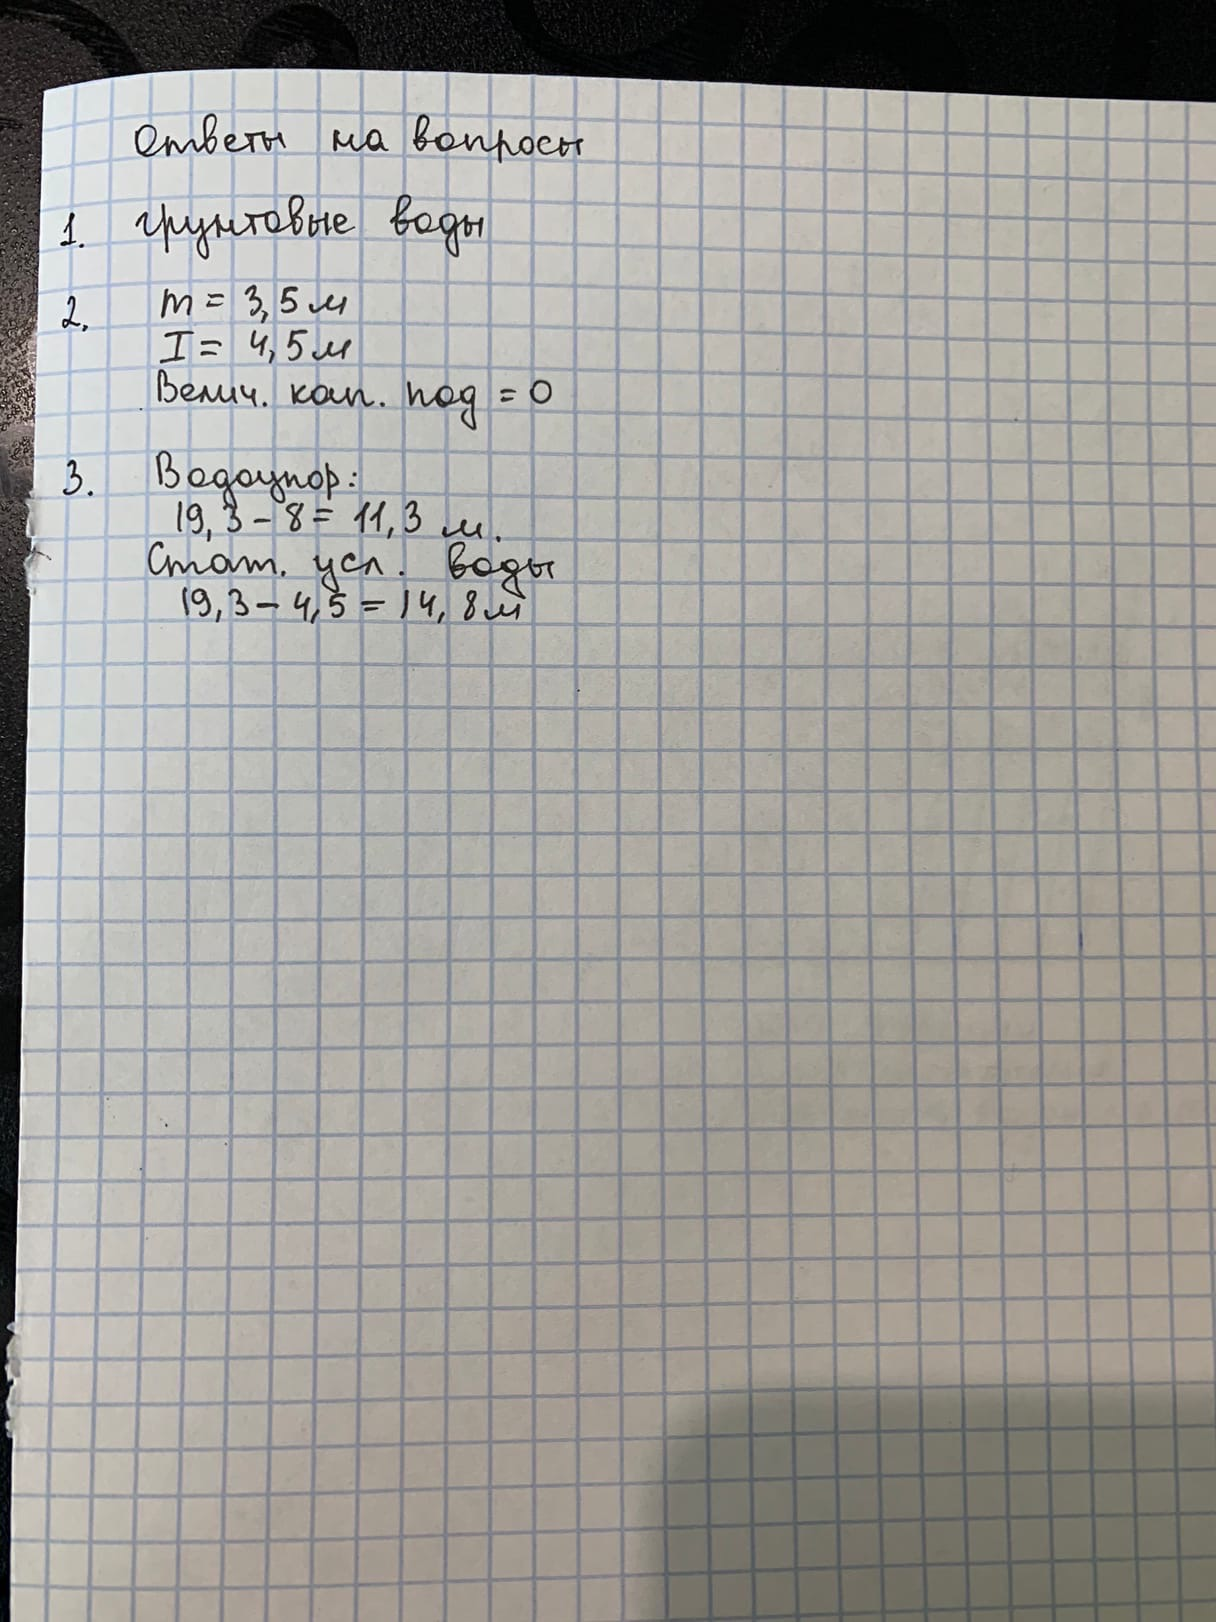 Ответы на вопросы
1. грунтовые воды
2. m = 3,5 м
I = 4,5 м
Велич. кап. под = 0
3. Водоупор:
19,3 - 8 = 11,3 м.
Стат. усл. воды
19,3 - 4,5 = 14,8 м